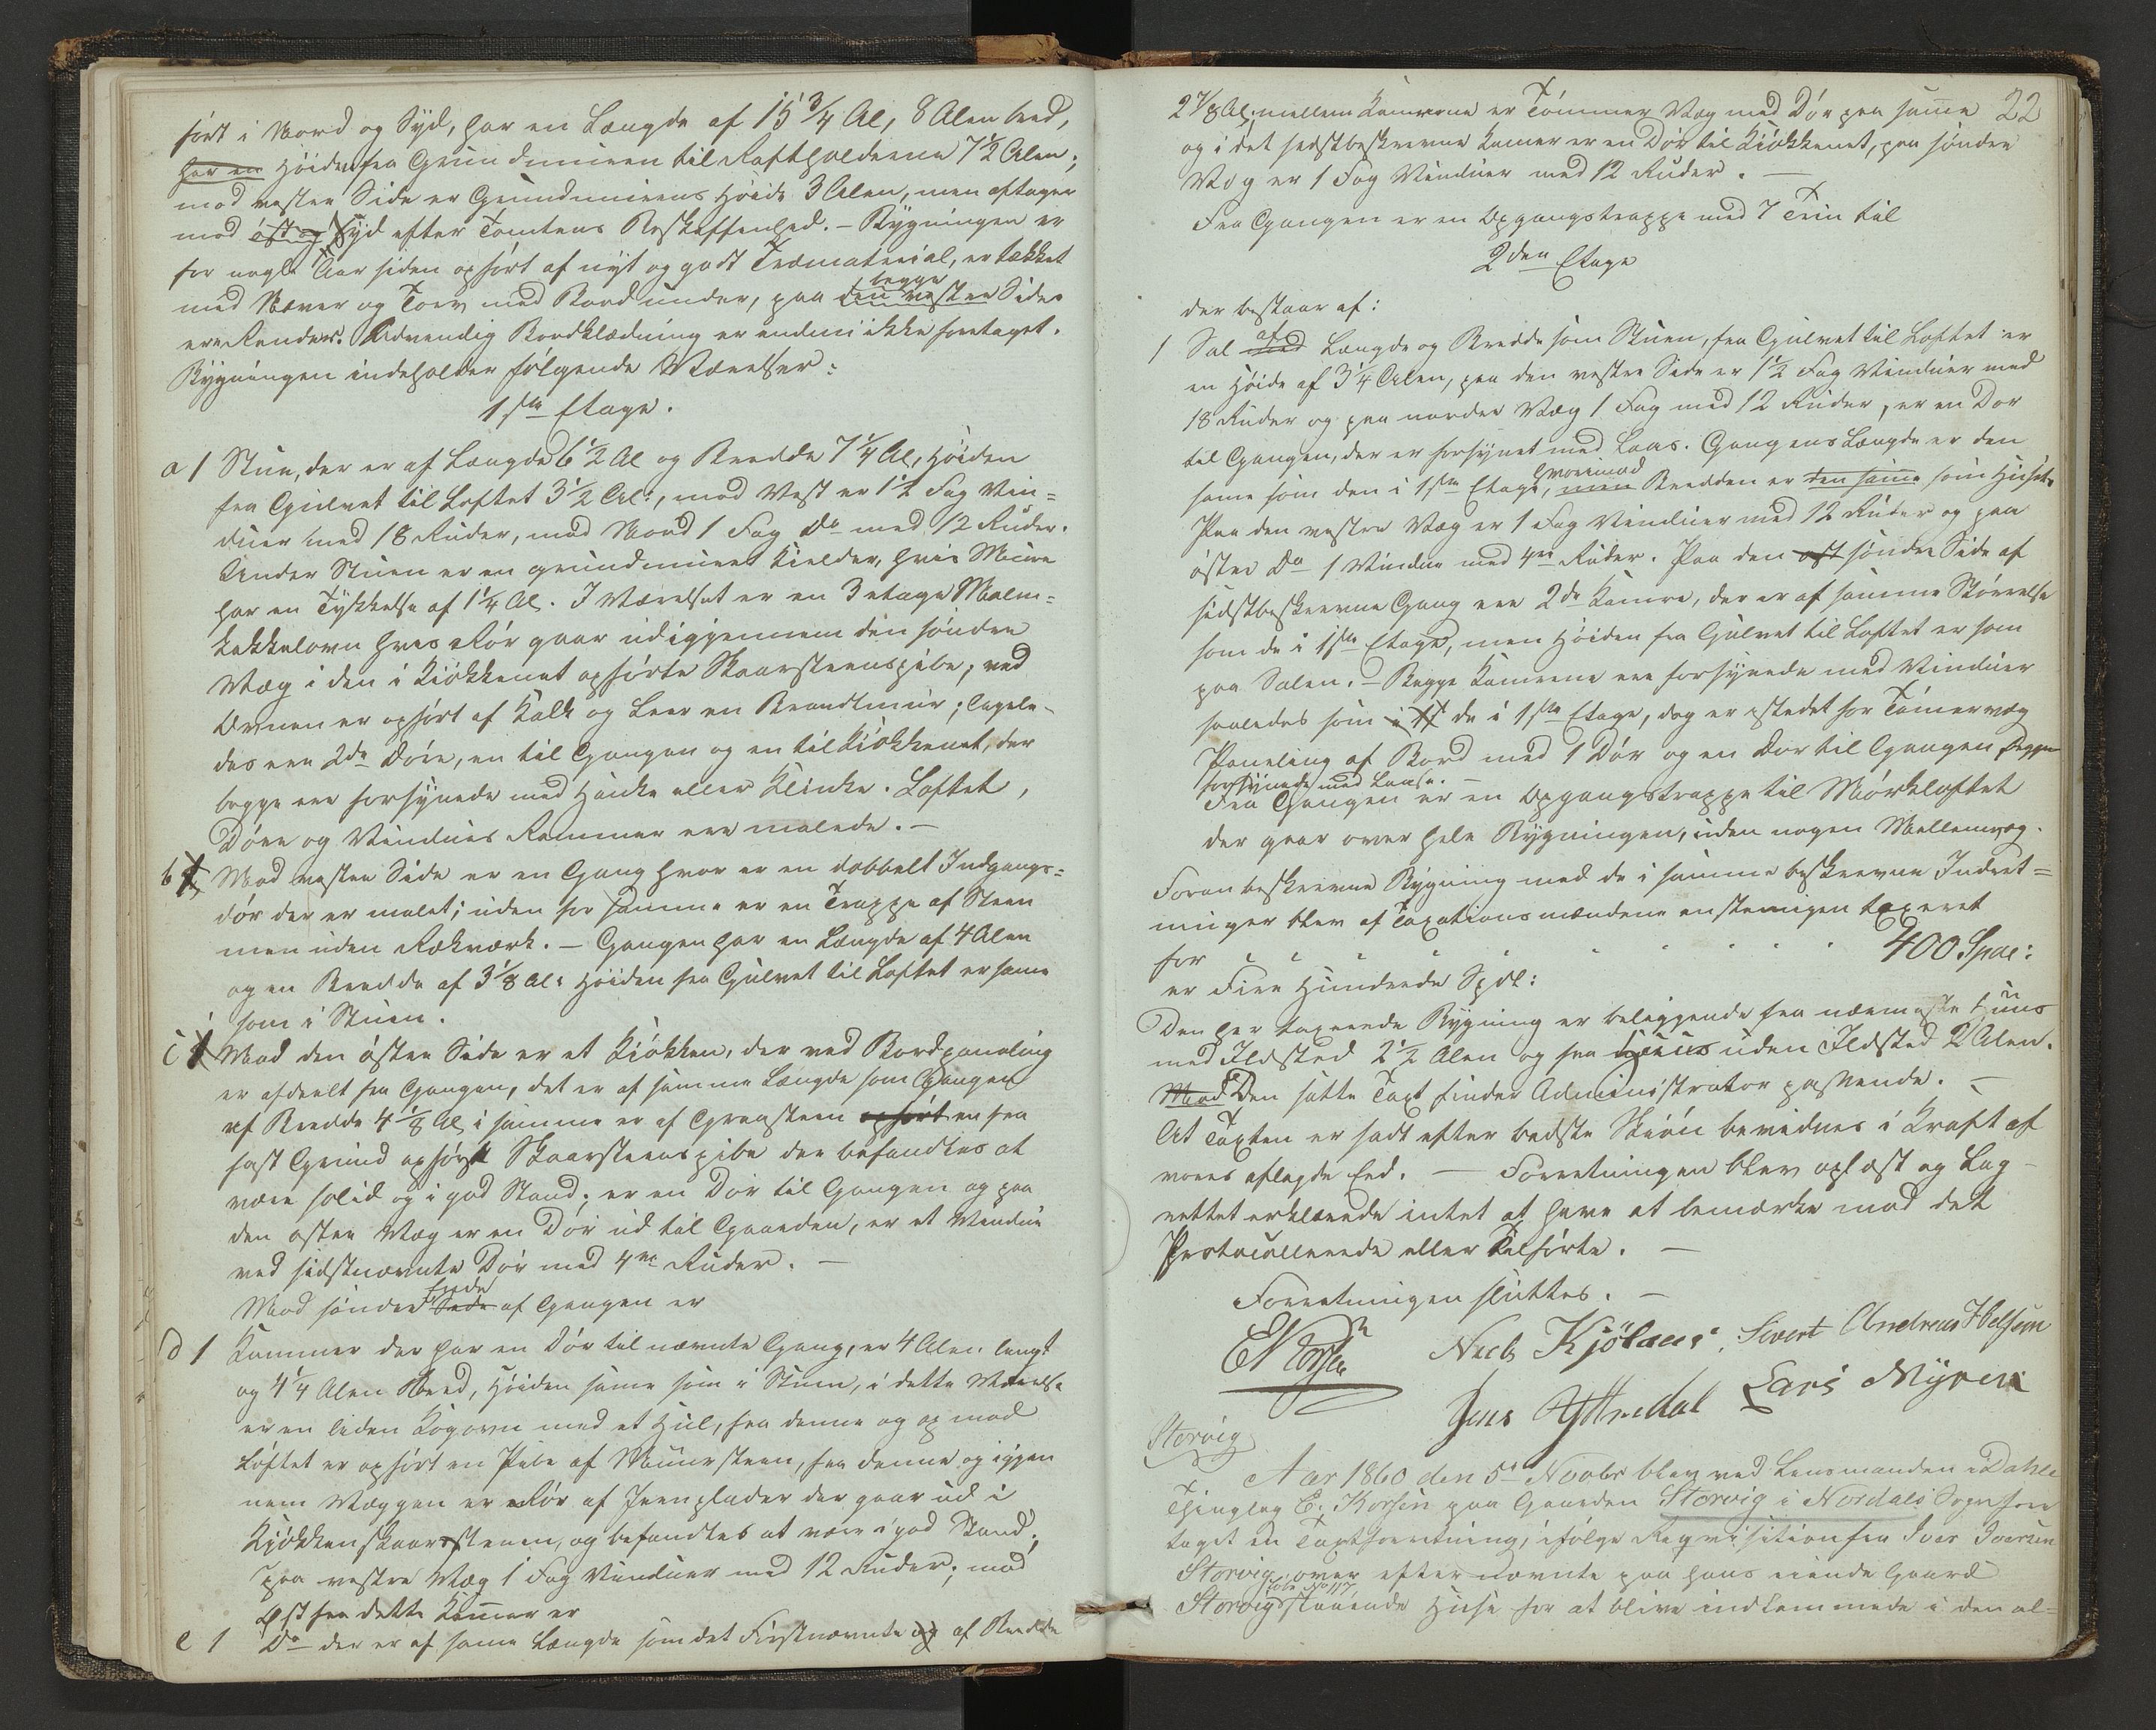 ført i Nord og Syd, har en Længde af 15 3/4 Al, 8 Alen bred,
har en Høiden fra Grundmuren til Raftholderne 7 1/2 Alen;
mod vestre Side er Grundmurens Høide 3 Alen, men aftager
mod øst og Syd efter Tomtens Beskaffenhed. – Bygningen er
for nogle Aar siden opført af nyt og godt Træmaterial, er tækket
med Næver og Torv med Bord under, paa den vestre begge Sider
ere Render. Udvendig Bordklædning er endnu ikke foretaget.
Bygningen indeholder følgende Værelser:
1ste Etage.
a 1 Stue, der er af Længde 6 1/2 Al og Bredde 7 1/4 Al, Høiden
fra Gulvet til Loftet 3 1/2 Al:, mod Vest er 1 1/2 Fag Vin=
duer med 18 Ruder, mod Nord 1 Fag Do med 12 Ruder.
Under Stuen er en grundmuret Kielder, hvis Mure
har en Tykkelse af 1 1/4 Al. I Værelset er en 3 etage Malm=
kakkelovn hvis Rør gaar ud igjennem den søndre
Væg i den i Kiøkkenet opførte Skaarsteenspibe; ved
Ovnen er opført af Kalk og Leer en Brandtmuur; ligele-
des ere 2de Døre, en til Gangen og en til Kiøkkenet, der
begge ere forsynede med Haandke eller Klinke. Loftet,
Døre og Vindues Rammer ere malede. –
b 1 Mod vestre Side er en Gang hvor er en dobbelt Indgangs=
dør der er malet; uden for samme er en Trappe af Steen
men uden Rækværk. – Gangen har en Længde af 4 Alen
og en Bredde af 3 1/8 Al: Høiden fra Gulvet til Loftet er same
som i Stuen.
c 1 Mod den østre Side er et Kiøkken, der ved Bordpaneling
er afdeelt fra Gangen, det er af samme Længde som Gangen
af Bredde 4 1/8 Al, i samme er af Graasteen opført en fra
fast Grund opført Skaarsteenspibe der befandtes at
være solid og i god Stand; er en Dør til Gangen og paa
den østre Væg er en Dør ud til Gaarden, er et Vindue
ved sidstnævnte Dør med 4re Ruder. –
Mod søndre Side Ende af Gangen er
d 1 Kammer der har en Dør til nævnte Gang, er 4 Alen langt
og 4 1/4 Alen Bred, Høiden same som i Stuen, i dette Værelse
er en liden Kogovn med et Hul, fra denne og op mod
Loftet er opført en Pibe af Muursteen, fra denne og igjen
nem Væggen er Rør af Jernplader der gaar ud i
Kjøkkenskaarstenen, og befandtes at være i god Stand;
paa vestre Væg 1 Fag Vinduer med 12 Ruder; mod
Øst fra dette Kamer er
e 1 Do der er af same Længde som det Førstnævnte og af Bredde
22
2 7/8 Al. mellem Kamerne er Tømmer Væg med Dør paa same
og i det sidstbeskrevne Kamer er en Dør til Kiøkkenet, paa søndre
Væg er 1 Fag Vinduer med 12 Ruder. –
Fra Gangen er en Opgangstrappe med 7 Trin til
2den Etage
der bestaar af:
1 Sal med af Længde og Bredde som Stuen, fra Gulvet til Loftet er
en Høide af 3 1/4 Alen, paa den vestre Side er 1 1/2 Fag Vinduer med
18 Ruder og paa nordre Væg 1 Fag med 12 Ruder, er en Dør
til Gangen, der er forsynet med Laas. Gangens Længde er den
same som den i 1ste Etage, men hvorimod Bredden er den same som Husets
Paa den vestre Væg er 1 Fag Vinduer med 12 Ruder og paa
østre Do 1 Vindue med 4re Ruder. Paa den øst søndre Side af
sidstbeskrevne Gang ere 2de Kamre, der er af samme Størrelse
som de i 1ste Etage, men Høiden fra Gulvet til Loftet er som
paa Salen. – Begge Kamerne ere forsynede med Vinduer
saaledes som i de i 1ste Etage, dog er istedet for Tømervæg
Paneling af Bord med 1 Dør og en Dør til Gangen begge
forsynede med Laase. –
Fra Gangen er en Opgangstrappe til Mørkloftet
der gaar over hele Bygningen, uden nogen Mellemvæg.
Foran beskrevne Bygning med de i samme beskrevne Indret=
ninger blev af Taxationsmændene enstemmigen taxeret
for 400 Spdl:
er Fire Hundrede Spdl:
Den her taxerede Bygning er beliggende fra nærmeste Huus
med Ildsted 2 1/2 Alen og fra Huus uden Ildsted 2 Alen.
Mod Den satte Taxt finder Administrator passende. –
At Taxten er sadt efter bedste Skiøn bevidnes i Kraft af
vores aflagde Eed. – Forretningen blev oplæst og Lag-
rettet erklærede intet at have at bemærke mod det
Protocollerede eller Tilførte. –
Forretningen sluttes. –
Niels Kjölaas. Sivert Andreas
Jens Yttredal Lars Myren
Storvig
Aar 1860 den 5te Novbr blev ved Lensmanden i Dahle
Thinglag E. Korsen paa Gaarden Storvig i Nordals Sogn fore
taget en Taxtforretning, ifølge Reqvisition fra Iver Iversen
Storvig, over efternævnte paa hans eiende Gaard
Storvig Løbe No 117 staaende Huse for at blive indlemmede i den al=